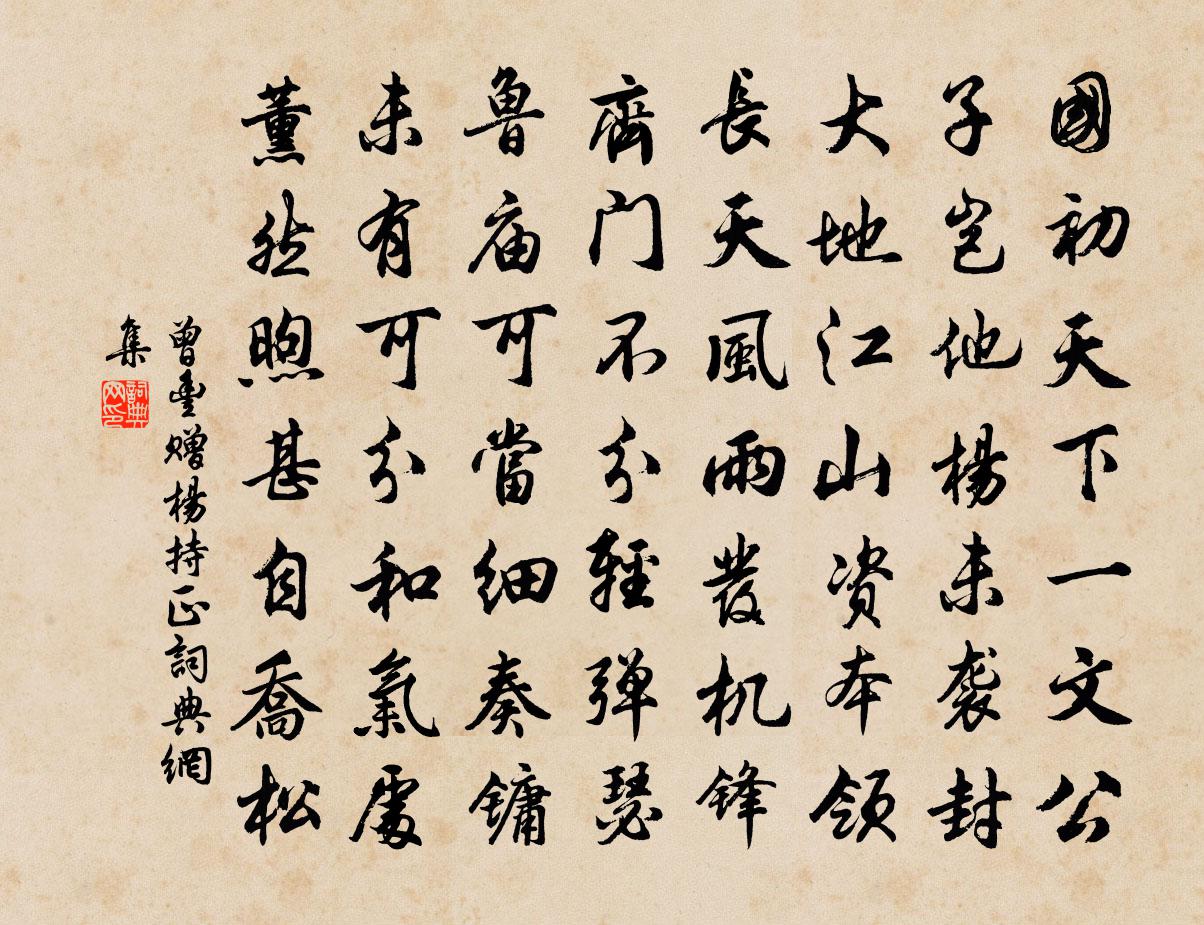 國初天下一文公
子岂他楊未袭封
大地江山资本领
長天風雨發机锋
齊门不分輕弹瑟
魯庙可當细奏镛
未有可分和氣處
薰然煦甚自喬松
曾豊赠楊持正詞典網
集
詞典网印